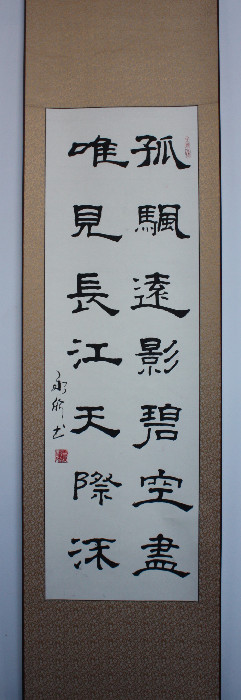 孤颿遠影碧空盡
唯見長江天際流